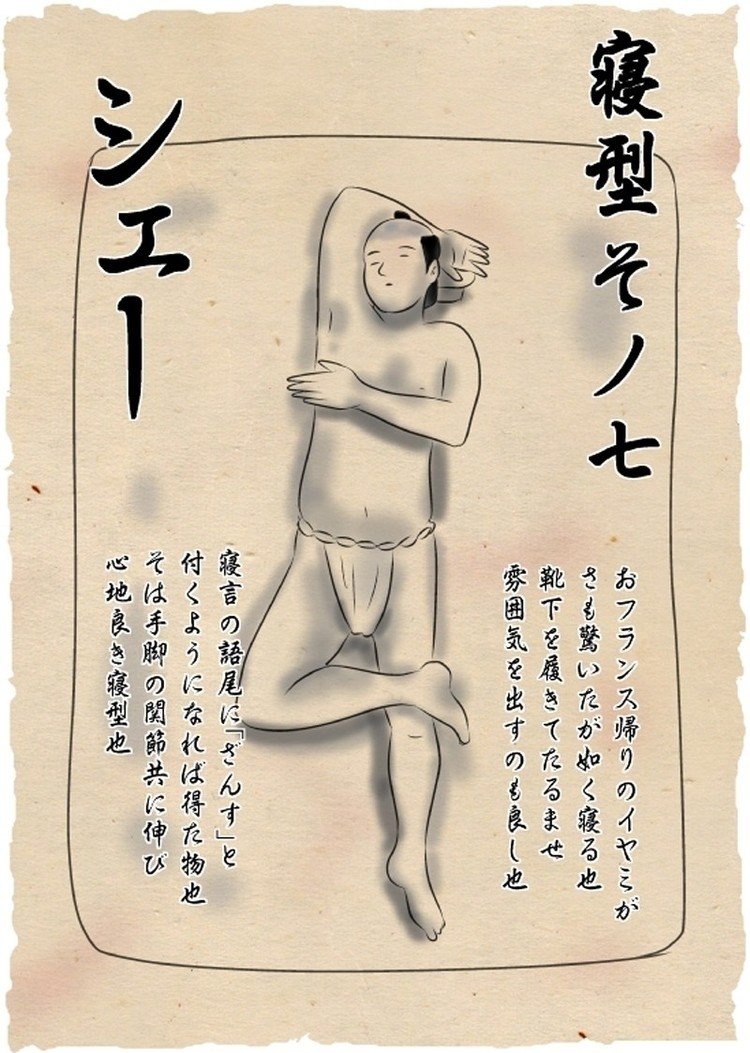 寝型そノ七
おフランス帰りのイヤミが
さも驚いたが如く寝る也
靴下を履きてたるませ
雰囲気を出すのも良し也
シェー
寝言の語尾に「ざんす」と
付くようになれば得た物也
そは手脚の関節共に伸び
心地良き寝型也